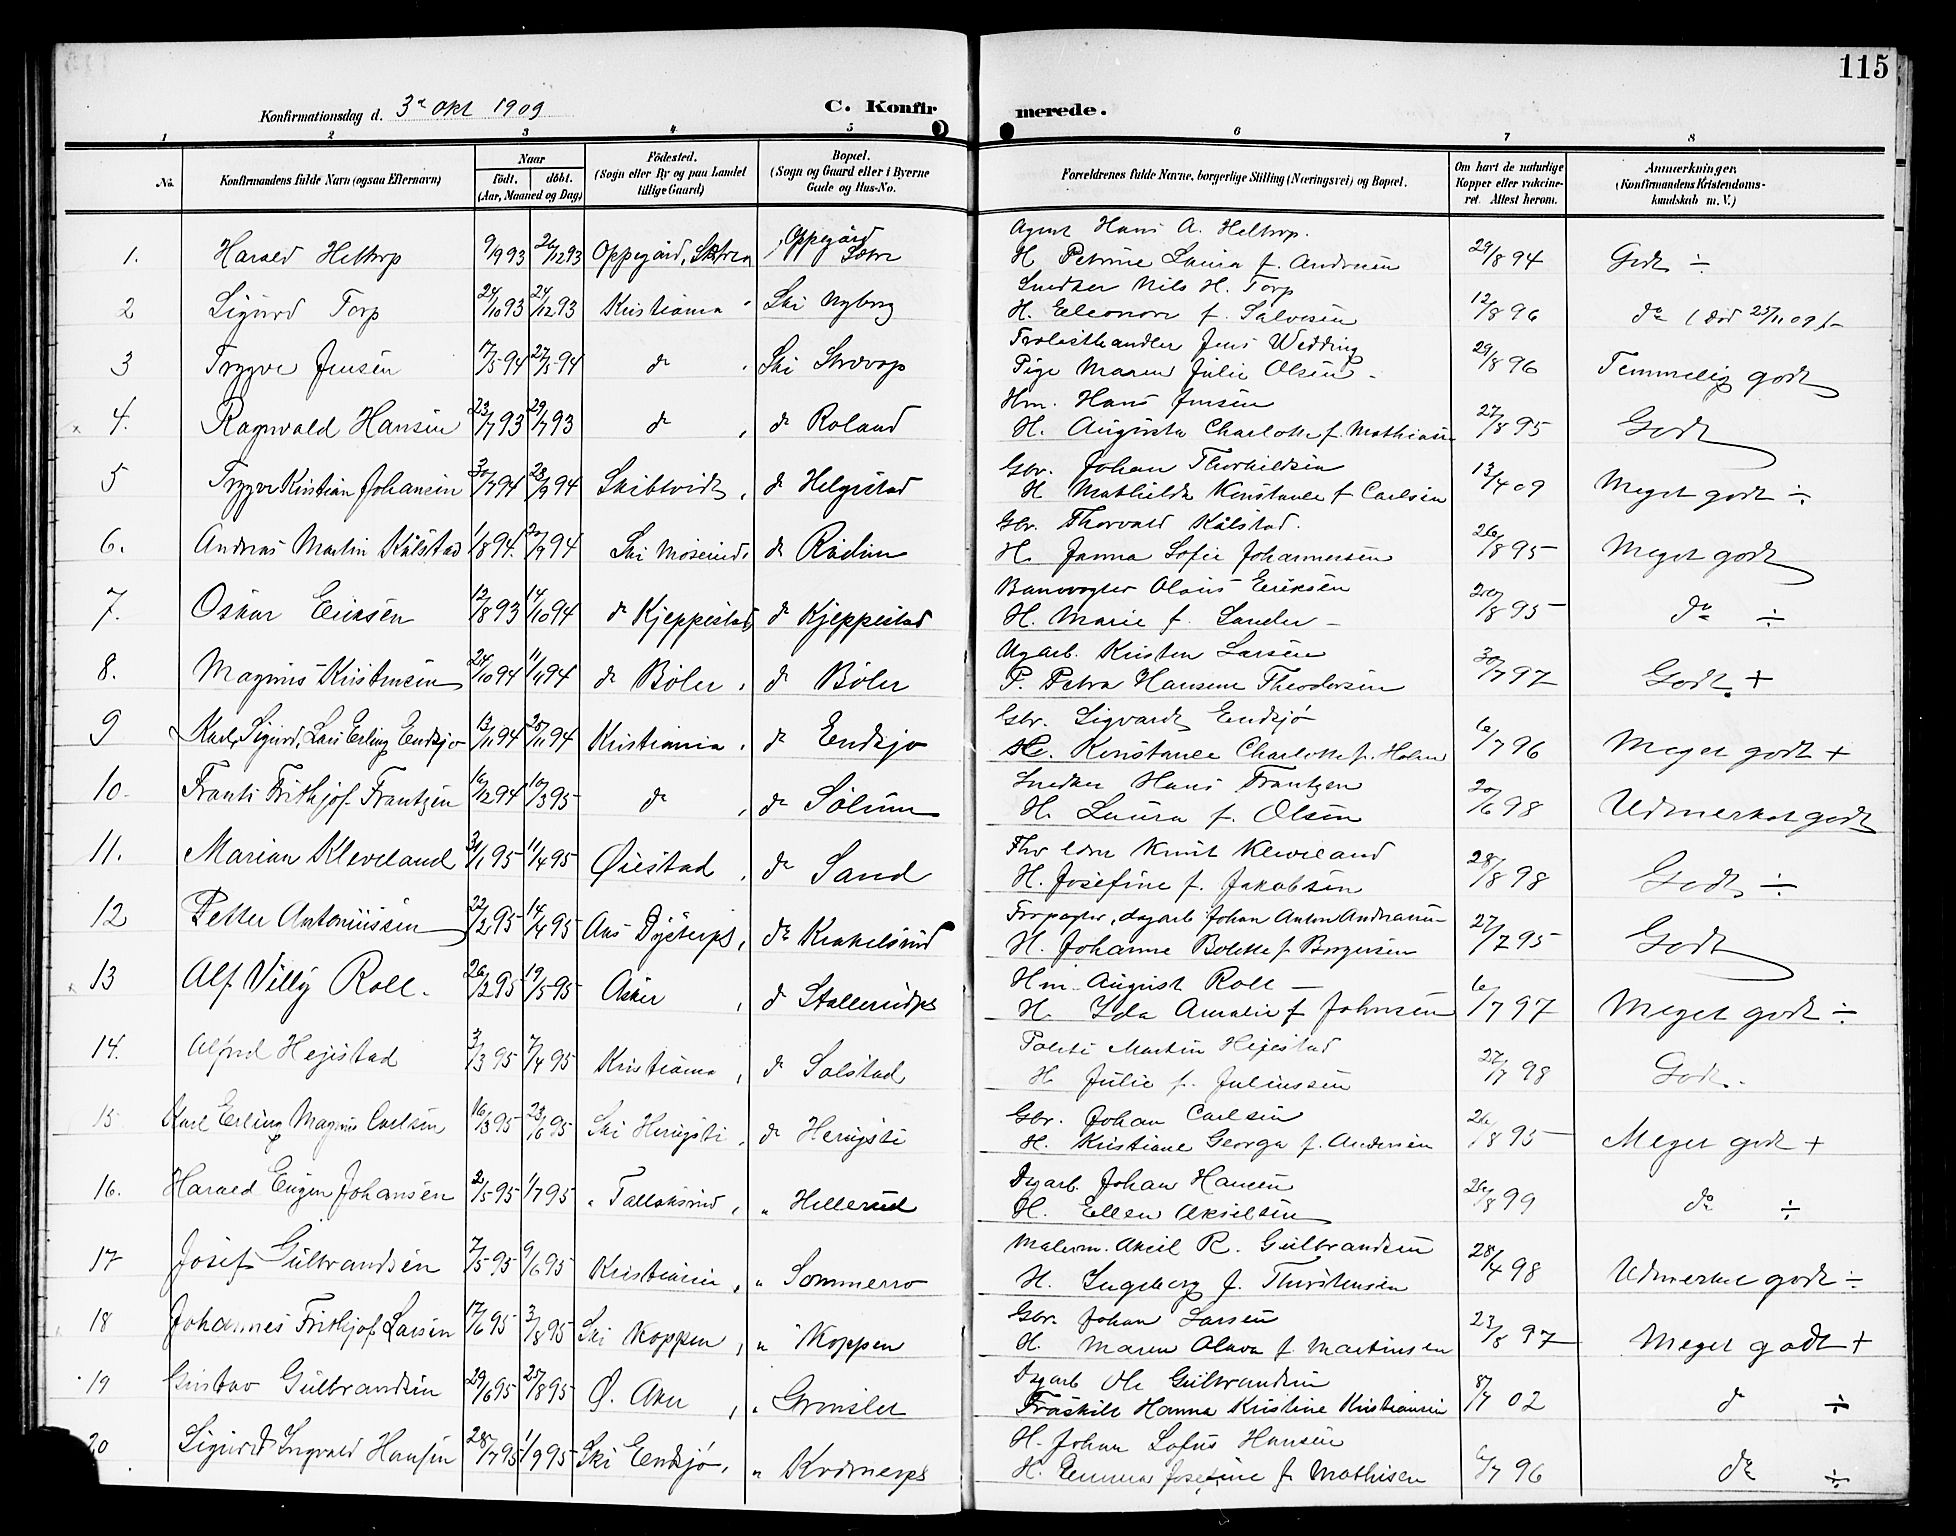 115
Konfirmationsdag d. 3e Okt 1909 C. Konfirmerede.
1 2 3 4 5 6 7 8
No. Konfirmandens fulde Navn (ogsaa Efternavn) Naar födt. döbt. (Aar, Maaned og Dag) Födested. (Sogn eller By og paa Landet tillige Gaard) Bopæl. (Sogn og Gaard eller i Byerne Gade og Hus-No. Forældrenes fulde Navne, borgerlige Stilling (Næringsvei) og Bopæl. Om havt de naturlige Kopper eller vakcineret. Attest herom. Anmærkninger. (Konfirmandens Kristendomskundskab m. V.)
Agent Hans A. Heltorp.
1. Harald Heltorp 9/9 93 26/12 93 Oppegård, Oppegård H. Petrine Laura f. Andresen 29/8 94 Godt ÷
Snedker Nils H. Torp
2 Sigurd Torp 24/10 93 24/12 93 Kristiania Ski Nyborg H. Eleonore f. Salvesen 12/8 96 do (død 25/11 09)
Jens Wedding
3 Trygve Jensen 17/5 94 27/5 94 do Ski Pige Maren Julie Olsen 29/8 96 Temmelig godt
Hm. Hans Jensen
4. Ragnvald Hansen 23/7 93 29/7 93 do do Roland H. Augusta Charlotte f. Mathiasen 27/8 95 Godt
Gbr. Johan Thorkildsen
5 Trygve Kristian Johansen 30/7 94 23/9 94 Skibtvedt, do Helgestad H. Mathilde Konstance f. Carlsen 13/4 09 Meget godt ÷
Gbr. Thorvald Kålstad.
6. Andreas Martin Kålstad 1/8 94. 2/9 94 Ski do Rødim H. Janna Sofie Johannessen 26/8 95 Meget godt
Banevogter Olaus Eriksen
7. Oskar Eriksen 12/8 93 14/10 94 do Kjeppestad, do Kjeppestad H. Marie f. Sander 20/8 95 do ÷
Ugarb. Kristen Larsen
8. Magnus Kristensen 24/10 94 11/11 94 do Bøler, do Bøler P. Petra Hansine Theodorsen 30/7 97 Godt. +
Gbr. Sigvardt Endsjø
9 Karl, Sigurd, Lars Erling Endsjø 13/11 94 25/11 94 Kristiania, do Endsjø H. Konstance Charlotte f. Holm 6/7 96 Meget godt +
Snedker Hans Frantzen
10. Frants Frithjof Frantzen 16/12 94 10/3 95 do, do Solum H. Laura f. Olsen 20/6 98 Udmerket godt
Knut Kleveland
11. Marian Kleveland 31/1 95 11/4 95 Øiestad, do Sand H. Josefine f. Jakobsen 28/8 98 Godt ÷
dagarb Johan Anton Andreasen
12 Petter Antoniussen 22/2 95 14/4 95 Aas do Krakelsrud H. Johanne Bolette f. Borgersen 27/7 95 Godt
Hm. August Roll
13 Alf Villy Roll. 26/2 95 19/5 95 Asker, do Stallerudpl H. Ida Amalie f. Johnsen 6/7 97 Meget godt ÷
Politi Martin Hejestad
14. Alfred Hejestad 3/3 95 7/4 95 Kristiania, do Solstad H. Julie f. Juliussen 27/7 98 Godt.
Gbr. Johan Carlsen
15 Karl Erling Magnus Carlsen 16/3 95 23/6 95 Ski Herugsti, do Herugsti H. Kristiane Georga f. Andersen 26/8 95 Meget godt +
Dgarb. Johan Hansen
16. Harald Eugen Johansen 2/5 95 1/7 95 " Tallaksrud, " Hellerud H. Ellen Akselsen 26/8 99 do ÷
Malerm. Aksel R. Gulbrandsen
17 Josef Gulbrandsen 7/5 95 9/6 95 Kristiania, " Sommerro H. Ingeborg f. Thorstensen 28/4 98 Udmerket godt ÷
Gbr. Johan Larsen
18 Johannes Frithjof Larsen 17/6 95 3/8 95 Ski Koppen, " Koppen H. Maren Olava f. Martinsen 23/8 97 Meget godt +
Dgarb Ole Gulbrandsen
19 Gustav Gulbrandsen 29/6 95 25/8 95 Ø. Aker, " Grønsler Fraskilt Hanna Kristine Kristiansen 8/7 02 do ÷
H. Johan Lofus Hansen
20 Sigurd Ingvald Hansen 28/7 95 1/9 95 Ski Endsjø, " H. Emma Josefine f. Mathisen 6/7 96 do ÷